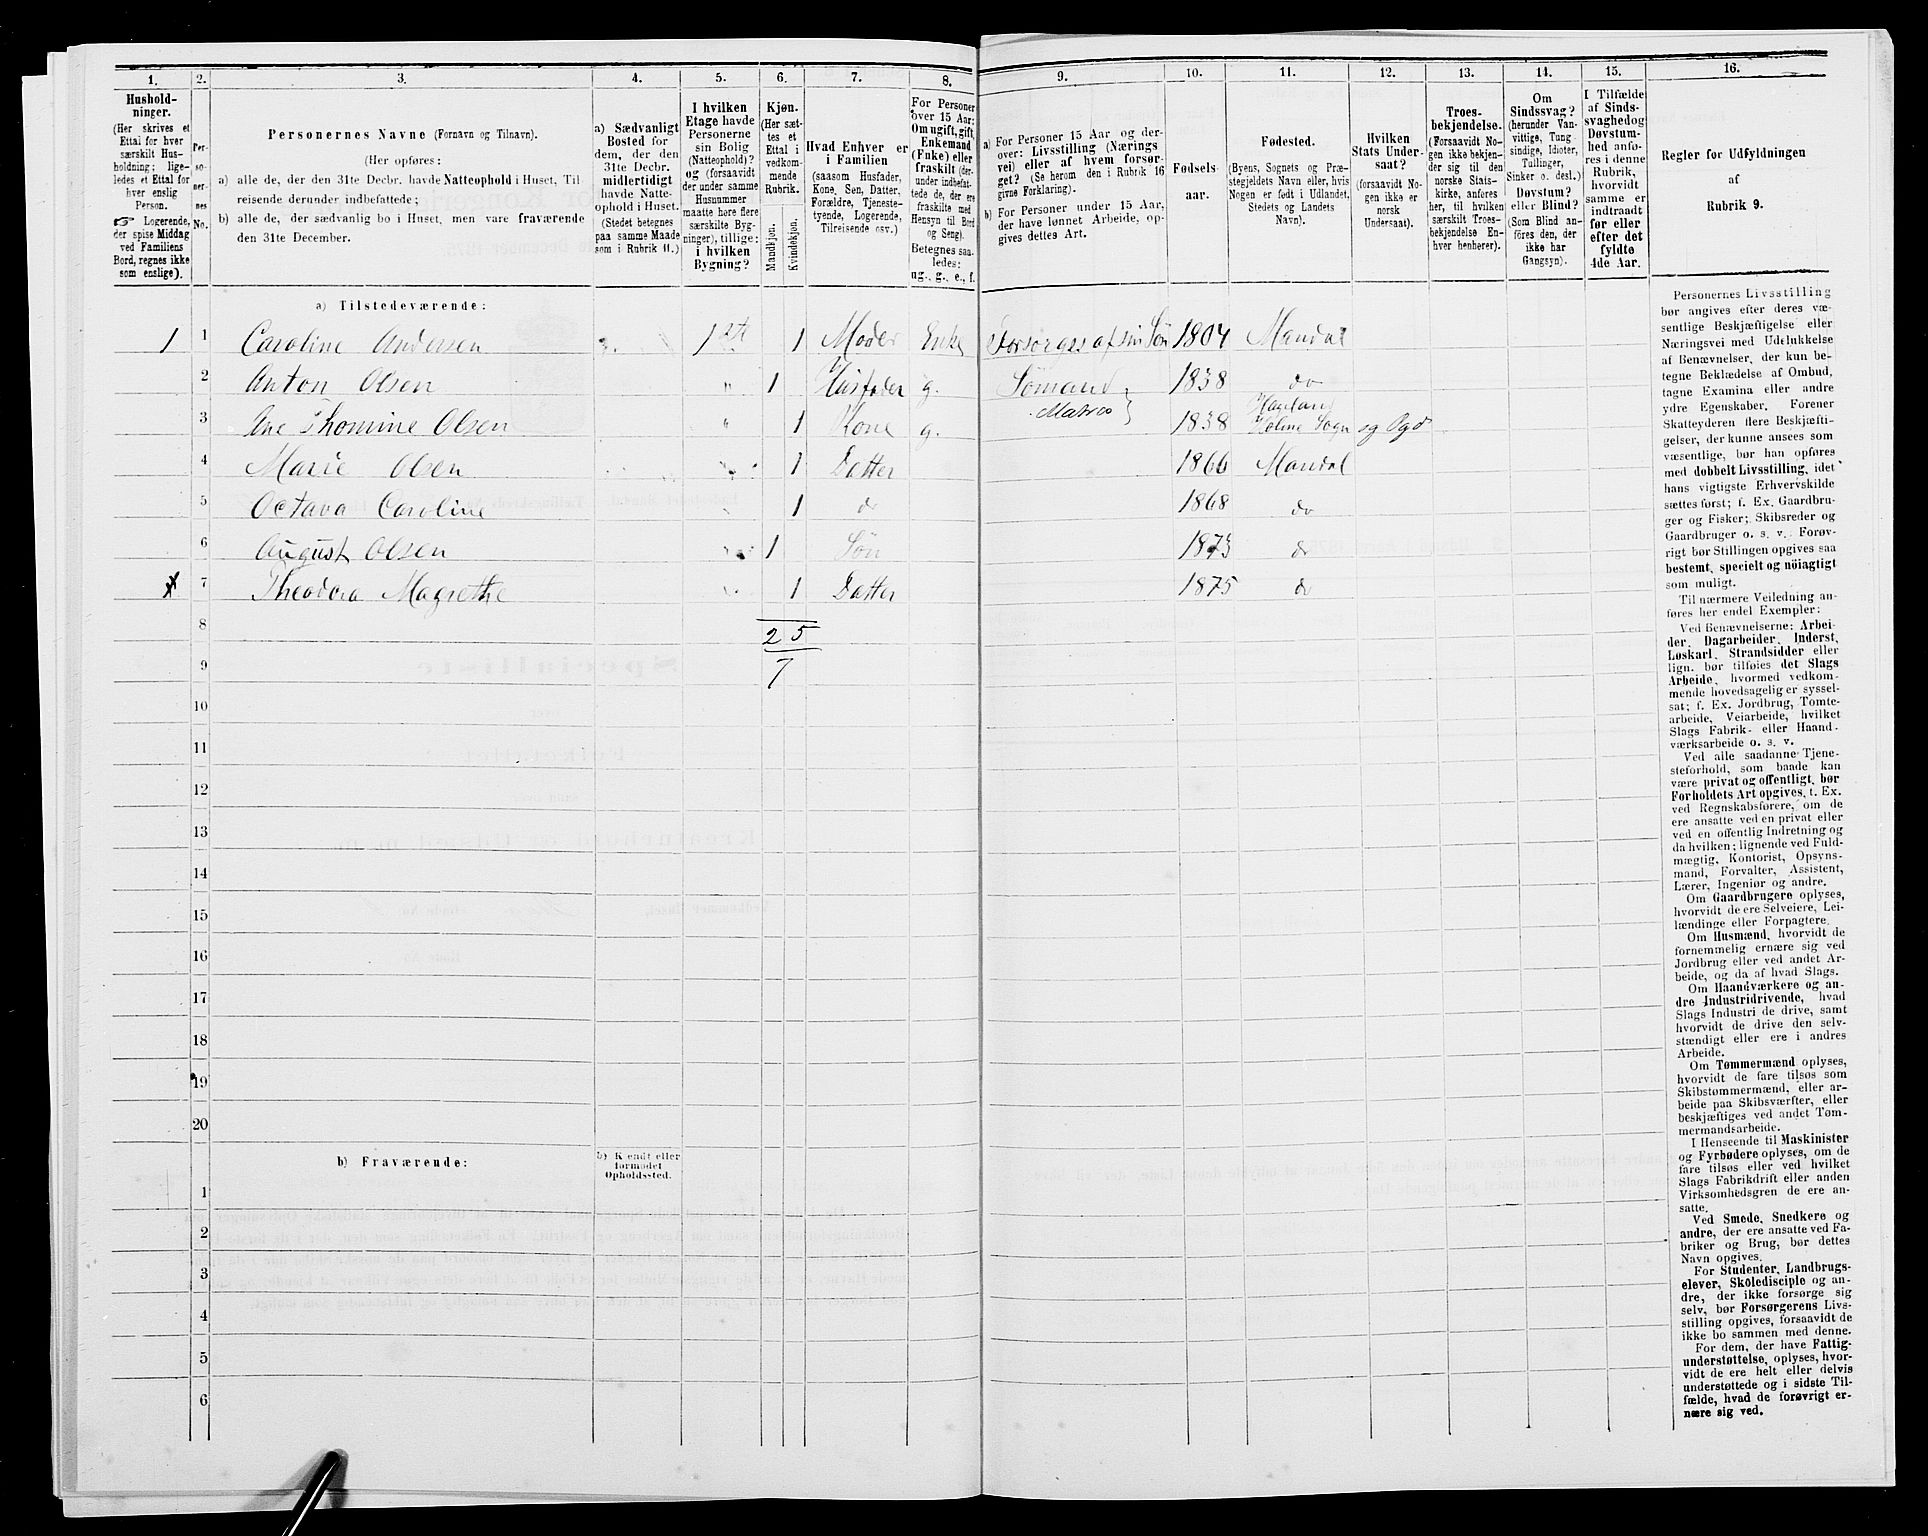 1. 2. 3. 4. 5. 6. 7. 8. 9. 10. 11. 12. 13. 14. 15. 16.
Hushold-
ninger.
(Her skrives et
Ettal for hver
særskilt Hus-
holdning; lige-
ledes et Ettal for
hver enslig
Person.
☞ Logerende,
der spise Middag
ved Familiens
Bord, regnes ikke
som enslige).
Per-
so-
ner-
nes
No.
Personernes Navne (Fornavn og Tilnavn).
(Her opføres:
a) alle de, der den 31te Decbr. havde Natteophold i Huset, Til-
reisende derunder indbefattede;
b) alle de, der sædvanlig bo i Huset, men vare fraværende
den 31te December.
a) Sædvanligt
Bosted for
dem, der den
31te Decbr.
midlertidigt
havde Natte-
ophold i Huset.
(Stedet betegnes
paa samme Maade
som i Rubrik 11.)
I hvilken
Etage havde
Personerne
sin Bolig
(Natteophold)?
og (forsaavidt
der under samme
Husnummer
maatte høre flere
særskilte Byg-
ninger), tillige:
i hvilken
Bygning?
Kjøn.
(Her sæt-
tes et
Ettal i
vedkom-
mende
Rubrik.
Mandkjøn.
Kvindekjøn.
Hvad Enhver er
i Familien
(saasom Husfader,
Kone, Søn, Datter,
Forældre, Tjeneste-
tyende, Logerende,
Tilreisende osv.)
For Personer
over 15 Aar:
Om ugift, gift,
Enkemand
(Enke) eller
fraskilt (der-
under indbefat-
tede de, der ere
fraskilte med
Hensyn til Bord
og Seng).
Betegnes saa-
ledes:
ug., g., e., f.
a) For Personer 15 Aar og der-
over: Livsstilling (Nærings
vei) eller af hvem forsør-
get? (Se herom den i Rubrik 16
givne Forklaring).
b) For Personer under 15 Aar,
der have lønnet Arbeide, op-
gives dettes Art.
Fødsels-
aar.
Fødested.
(Byens, Sognets og Præ-
stegjeldets Navn eller, hvis
Nogen er født i Udlandet,
Stedets og Landets
Navn).
Hvilken
Stats Under-
saat?
(forsaavidt No-
gen ikke er
norsk
Undersaat).
Troes-
bekjendelse.
(Forsaavidt No-
gen ikke bekjen-
der sig til den
norske Stats-
kirke, anføres
her, til hvilken
særskilt Troes-
bekjendelse En-
hver henhører).
Om
Sindssvag?
(herunder Van-
vittige, Tung-
sindige, Idioter,
Tullinger,
Sinker o. desl.)
Døvstum?
eller Blind?
(Som Blind an-
føres den, der
ikke har
Gangsyn).
I Tilfælde
af Sinds-
svaghed og
Døvstum-
hed anfø-
res i denne
Rubrik,
hvorvidt
samme er
indtraadt
før eller
efter det
fyldte
4de Aar.
Regler for Udfyldningen
af
Rubrik 9.
a) Tilstedeværende:
1 1 Caroline Andersen 1 st 1 Moder Enke Forsørges af sin Søn 1804 Mandal
2 Anton Olsen " 1 Husfader g. Sømand 1838 do
Matros
3 Ane Thomine Olsen " 1 Kone g. 1838 Holme Sogn og Pgd
4 Marie Olsen " 1 Datter 1866 Mandal
5 Octava Caroline " 1 do 1868 do
6 August Olsen " 1 Søn 1873 do
7 Theodora Magrethe " 1 Datter 1875 do
8 2 5
9 7
10
11
12
13
14
15
16
17
18
19
20
b) Fraværende:
b) Kendt eller
formodet
Opholdssted.
1
2
3
4
5
6
Personernes Livsstilling
bør angives efter deres væ-
sentlige Beskjæftigelse eller
Næringsvei med Udelukkelse
af Benævnelser, der kun be-
tegne Beklædelse af Ombud,
tagne Examina eller andre
ydre Egenskaber. Forener
Skatteyderen flere Beskjæfti-
gelser, der kunne ansees som
væsentlige, bør han opføres
med dobbelt Livsstilling, idet
hans vigtigste Erhvervskilde
sættes først; f. Ex. Gaardbru-
ger og Fisker; Skibsreder og
Gaardbruger o. s. v. Forøv-
rigt bør Stillingen opgives saa
bestemt, specielt og nöiagtigt
som muligt.
Til nærmere Veiledning an-
føres her endel Exempler:
Ved Benævnelserne: Arbei-
der, Dagarbeider, Inderst,
Løskarl, Strandsidder eller
lign. bør tilføies det Slags
Arbeide, hvormed vedkom-
mende hovedsagelig er syssel-
sat; f. Ex. Jordbrug, Tomte-
arbeide, Veiarbeide, hvilket
Slags Fabrik- eller Haand-
værksarbeide o. s. v.
Ved alle saadanne Tjene-
steforhold, som baade kan
være privat og offentligt, bør
Forholdets Art opgives, f. Ex.
ved Regnskabsførere, om de
ere ansatte ved en privat eller
ved en offentlig Indretning og
da hvilken; lignende ved Fuld-
mægtig, Kontorist, Opsyns-
mand, Forvalter, Assistent,
Lærer, Ingeniør og andre.
Om Gaardbrugere oplyses,
hvorvidt de ere Selveiere, Lei-
lændinge eller Forpagtere.
Om Husmænd, hvorvidt de
fornemmelig ernære sig ved
Jordbrug eller ved andet Ar-
beide, og da af hvad Slags.
Om Haandværkere og an-
dre Industridrivende, hvad
Slags Industri de drive, samt
hvorvidt de drive den selv-
stændigt eller ere i andres
Arbeide.
Om Tømmermænd oplyses,
hvorvidt de fare tilsøs som
Skibstømmermænd, eller ar-
beide paa Skibsværfter, eller
beskjæftiges ved andet Tøm-
mermandsarbeide.
I Henseende til Maskinister
og Fyrbødere oplyses, om de
fare tilsøs eller ved hvilket
Slags Fabrikdrift eller anden
Virksomhedsgren de ere an-
satte.
Ved Smede, Snedkere og
andre, der ere ansatte ved Fa-
briker og Brug, bør dettes
Navn opgives.
For Studenter, Landbrugs-
elever, Skoledisciple og an-
dre, der ikke forsørge sig
selv, bør Forsørgerens Livs-
stilling opgives, forsaavidt de
ikke bo sammen med denne.
For dem, der have Fattig-
understøttelse, oplyses, hvor-
vidt de ere helt eller delvis
understøttede og i sidste Til-
fælde, hvad de forøvrigt er-
nære sig ved.